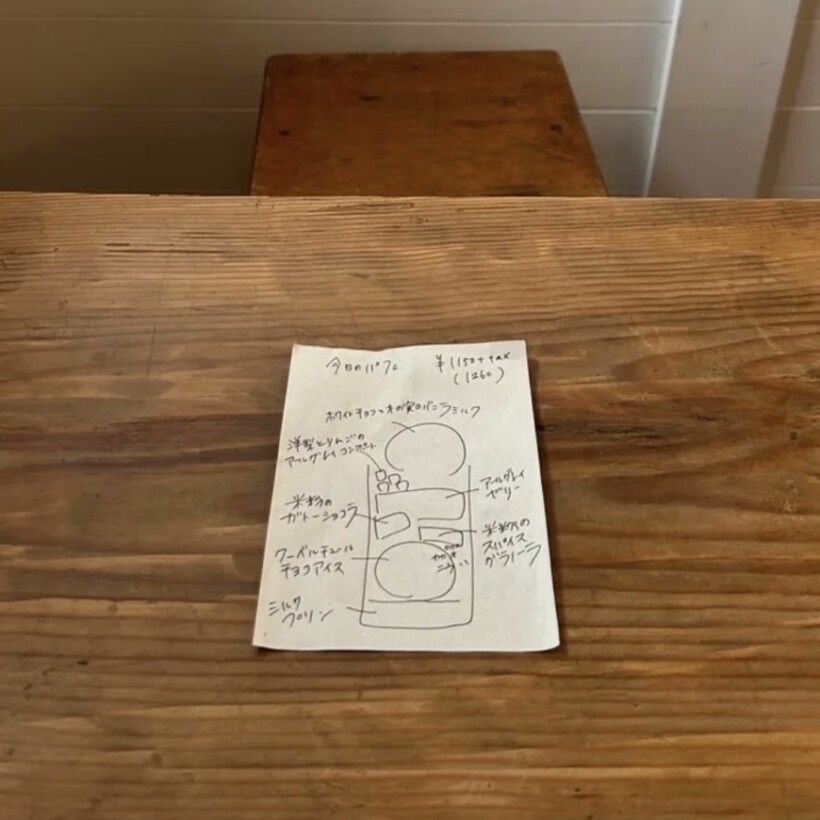 今日のパフェ ¥1150+tax
(1260)
ホワイトチョコと木の実のバニラミルク
洋梨とりんごの
アールグレイコンポート
アールグレイ
ゼリー
米粉の
ガトーショコラ
米粉の
スパイス
グラノーラ
クーベルチュール
チョコアイス
ミルク
プリン